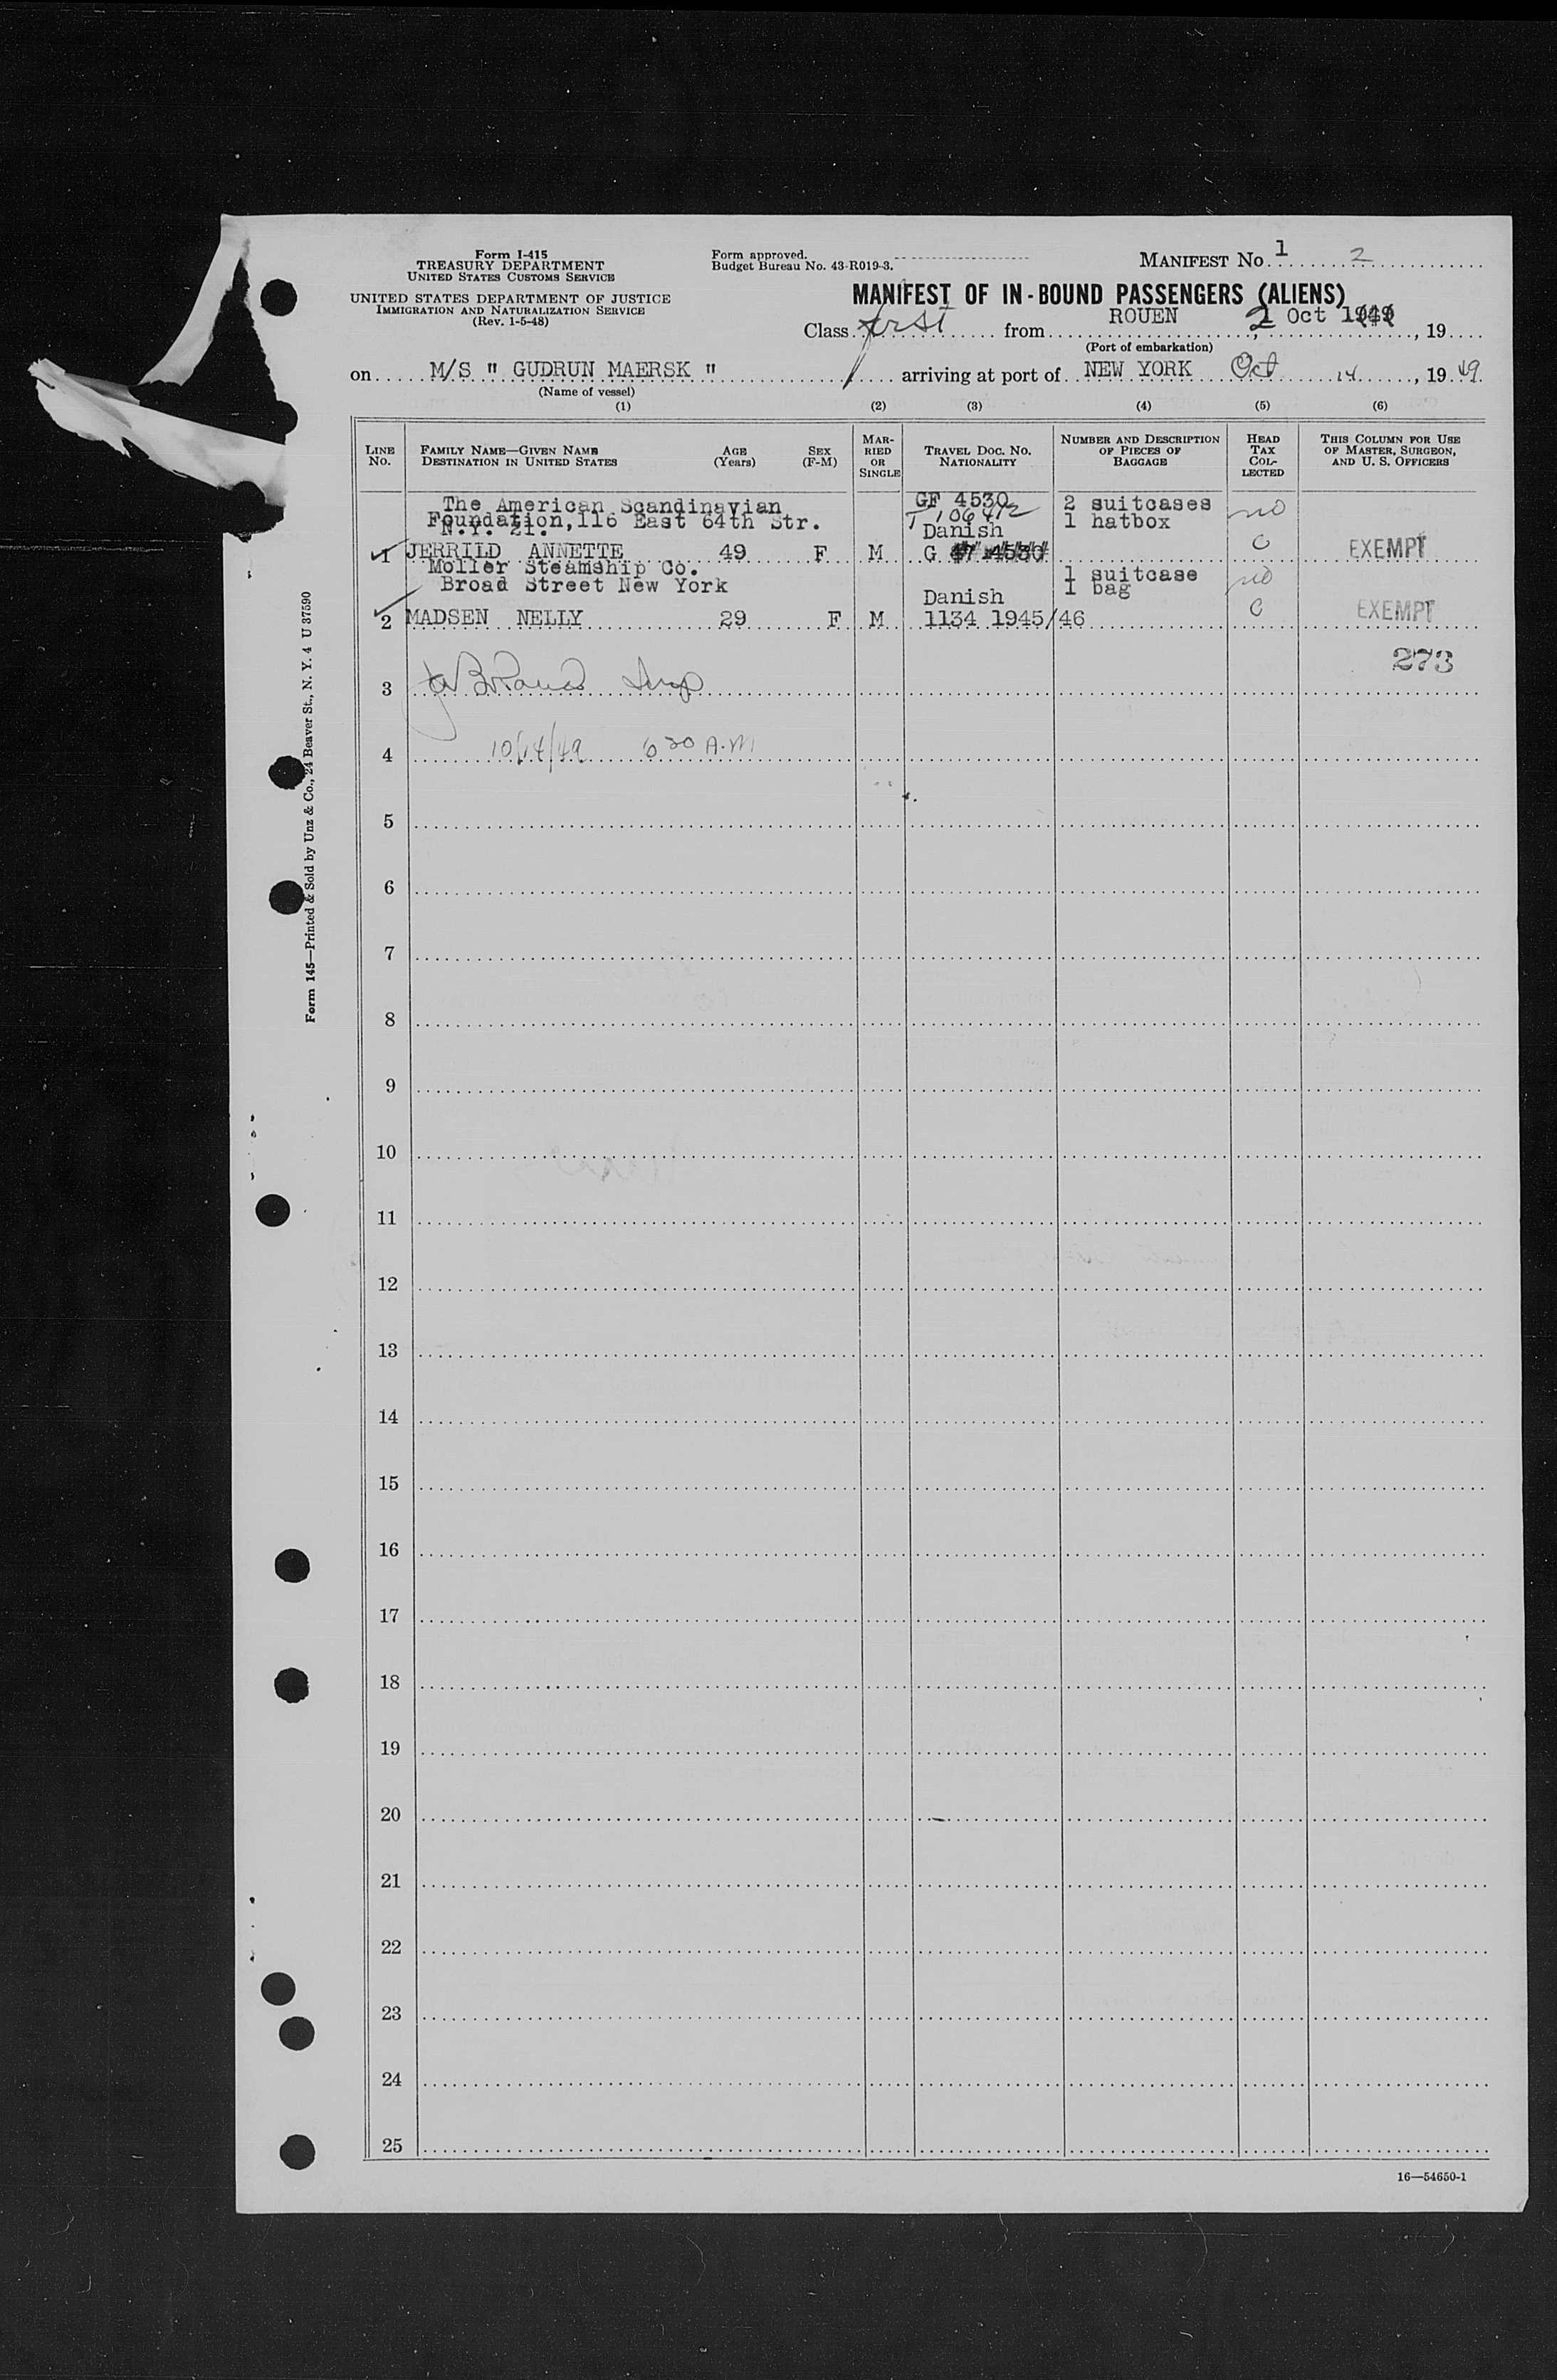 Form I-415
TREASURY DEPARTMENT
UNITED STATES CUSTOMS SERVICE
UNITED STATES DEPARTMENT OF JUSTICE
IMMIGRATION AND NATURALIZATION SERVICE
(Rev. 1-5-48)
Form approved.
Budget Bureau No. 43-R019-3.
MANIFEST No. 1 2
MANIFEST OF IN-BOUND PASSENGERS (ALIENS)
Class first from ROUEN, 2 Oct 1949, 19
(Port of embarkation)
on M/S " GUDRUN MAERSK " arriving at port of NEW YORK Oct 14, 19 49
(Name of vessel)
(1) (2) (3) (4) (5) (6)
LINE No. FAMILY NAME—GIVEN NAME DESTINATION IN UNITED STATES AGE (Years) SEX (F-M) MARRIED OR SINGLE TRAVEL DOC. NO. NATIONALITY NUMBER AND DESCRIPTION OF PIECES OF BAGGAGE HEAD TAX COLLECTED THIS COLUMN FOR USE OF MASTER, SURGEON, AND U. S. OFFICERS
The American Scandinavian GF 4530 2 suitcases no
Foundation, 116 East 64th Str. 1 hatbox
N.Y. 21. Danish
1 JERRILD ANNETTE 49 F M G 47 4530 EXEMPT
Moller Steamship Co. 1 suitcase no
Broad Street New York 1 bag
Danish
2 MADSEN NELLY 29 F M 1134 1945/46 EXEMPT
273
3 Insp
4 10/14/49 6 30 A.M
5
6
7
8
9
10
11
12
13
14
15
16
17
18
19
20
21
22
23
24
25
16—54650-1
Form 145—Printed & Sold by Unz & Co., 24 Beaver St., N. Y. 4 U 37590